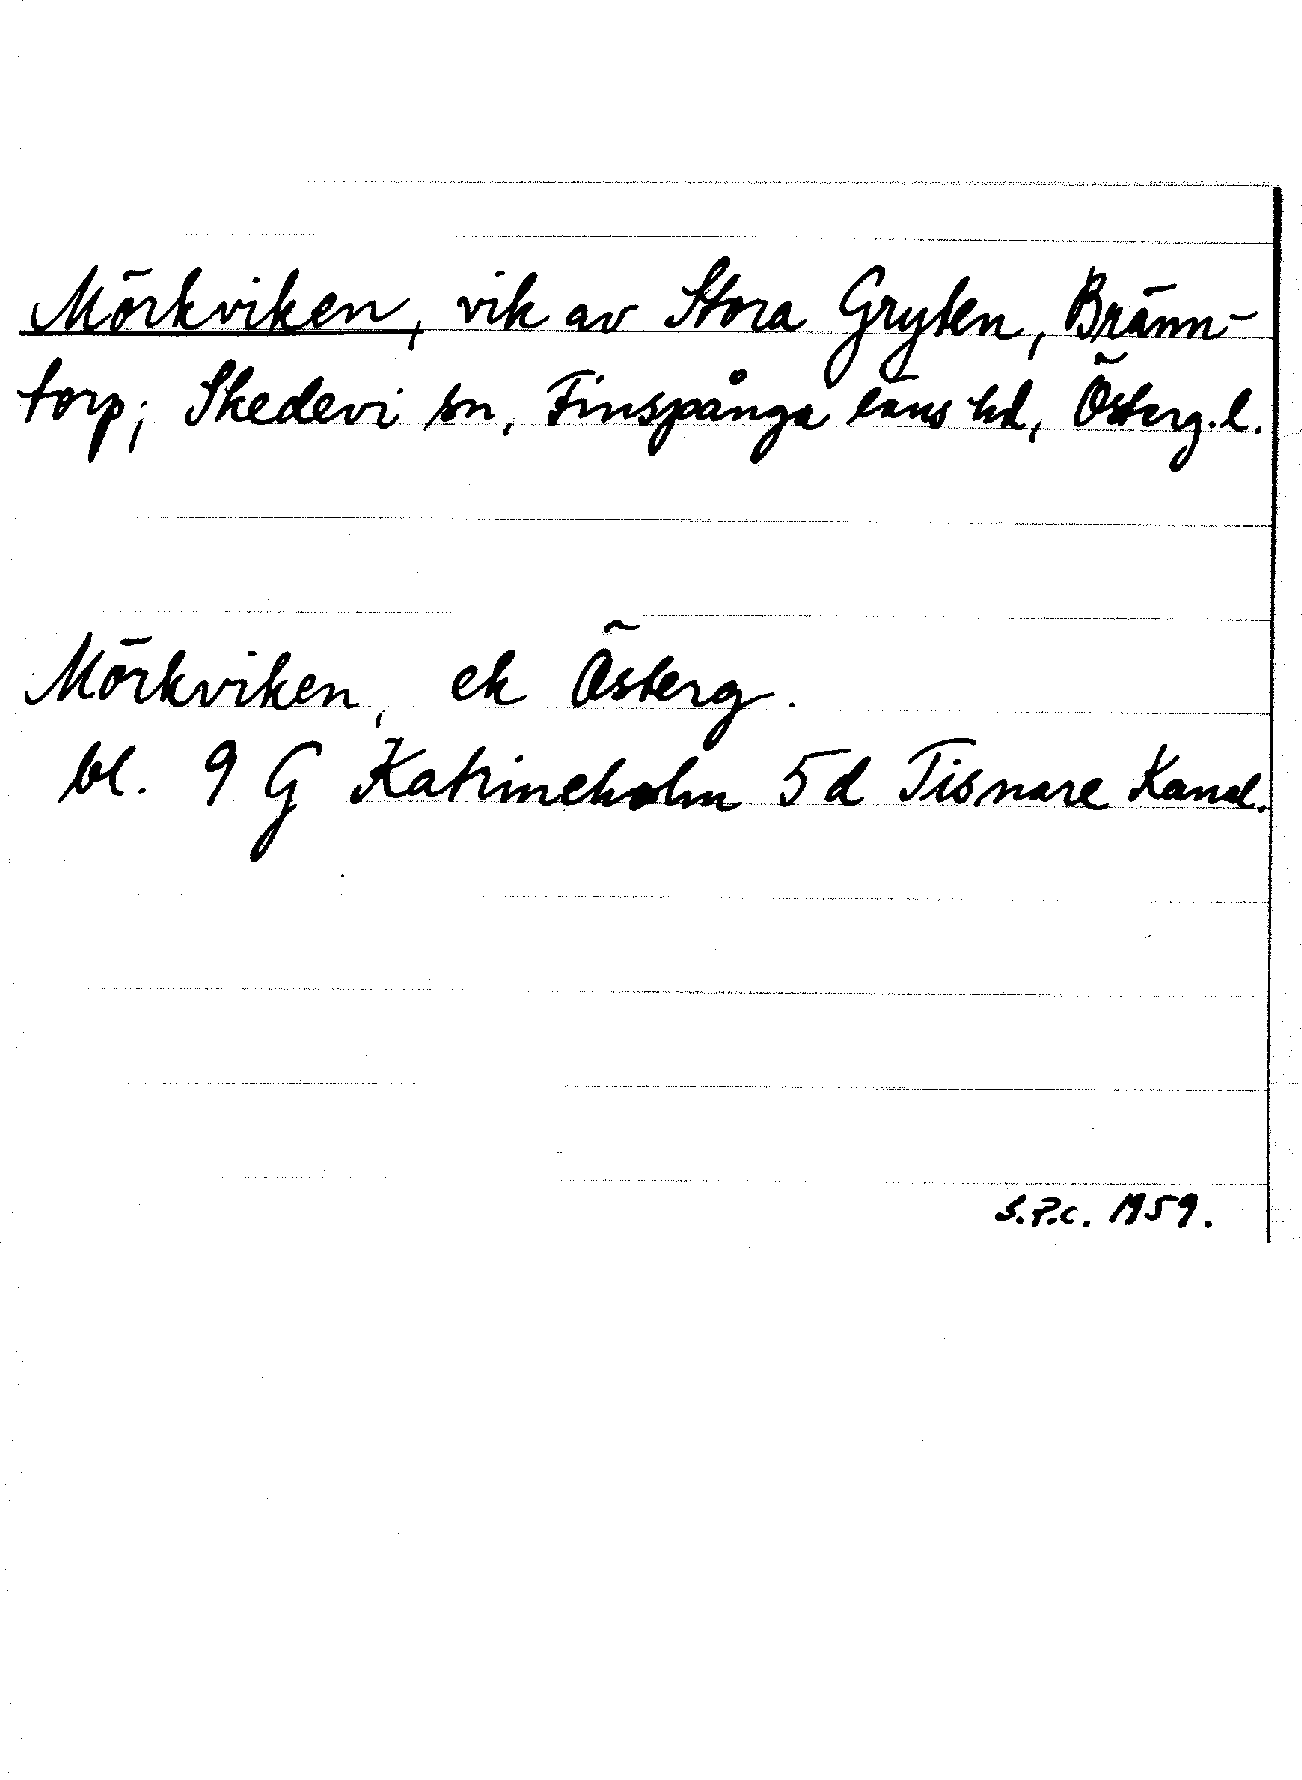 Mörkviken, vik av Stora Gryten, Bränn-
torp; Skedevi sn, Finspånga läns hd, Österg. l.
Mörkviken, ek Österg.
bl. 9 G Katrineholm 5d Tisnare Kanal.
S.P.C. 1959.